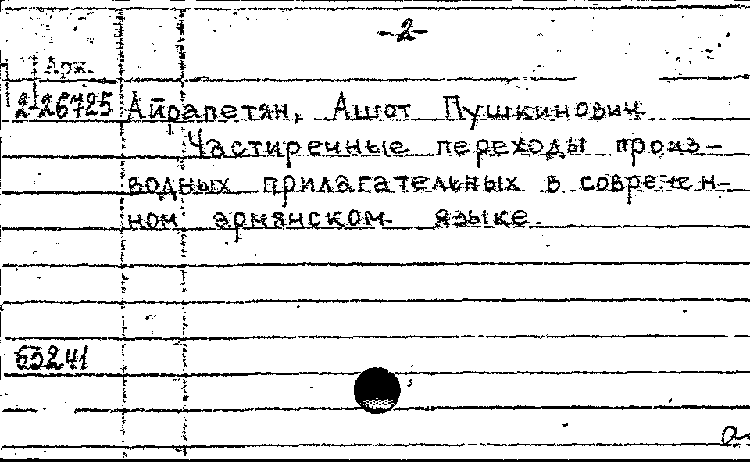 -2-
Арм.
2-26725 Айрапетян, Ашот Пушкинович
Частиречные переходы произ-
водных прилагательных в современ-
ном армянском языке.
65241